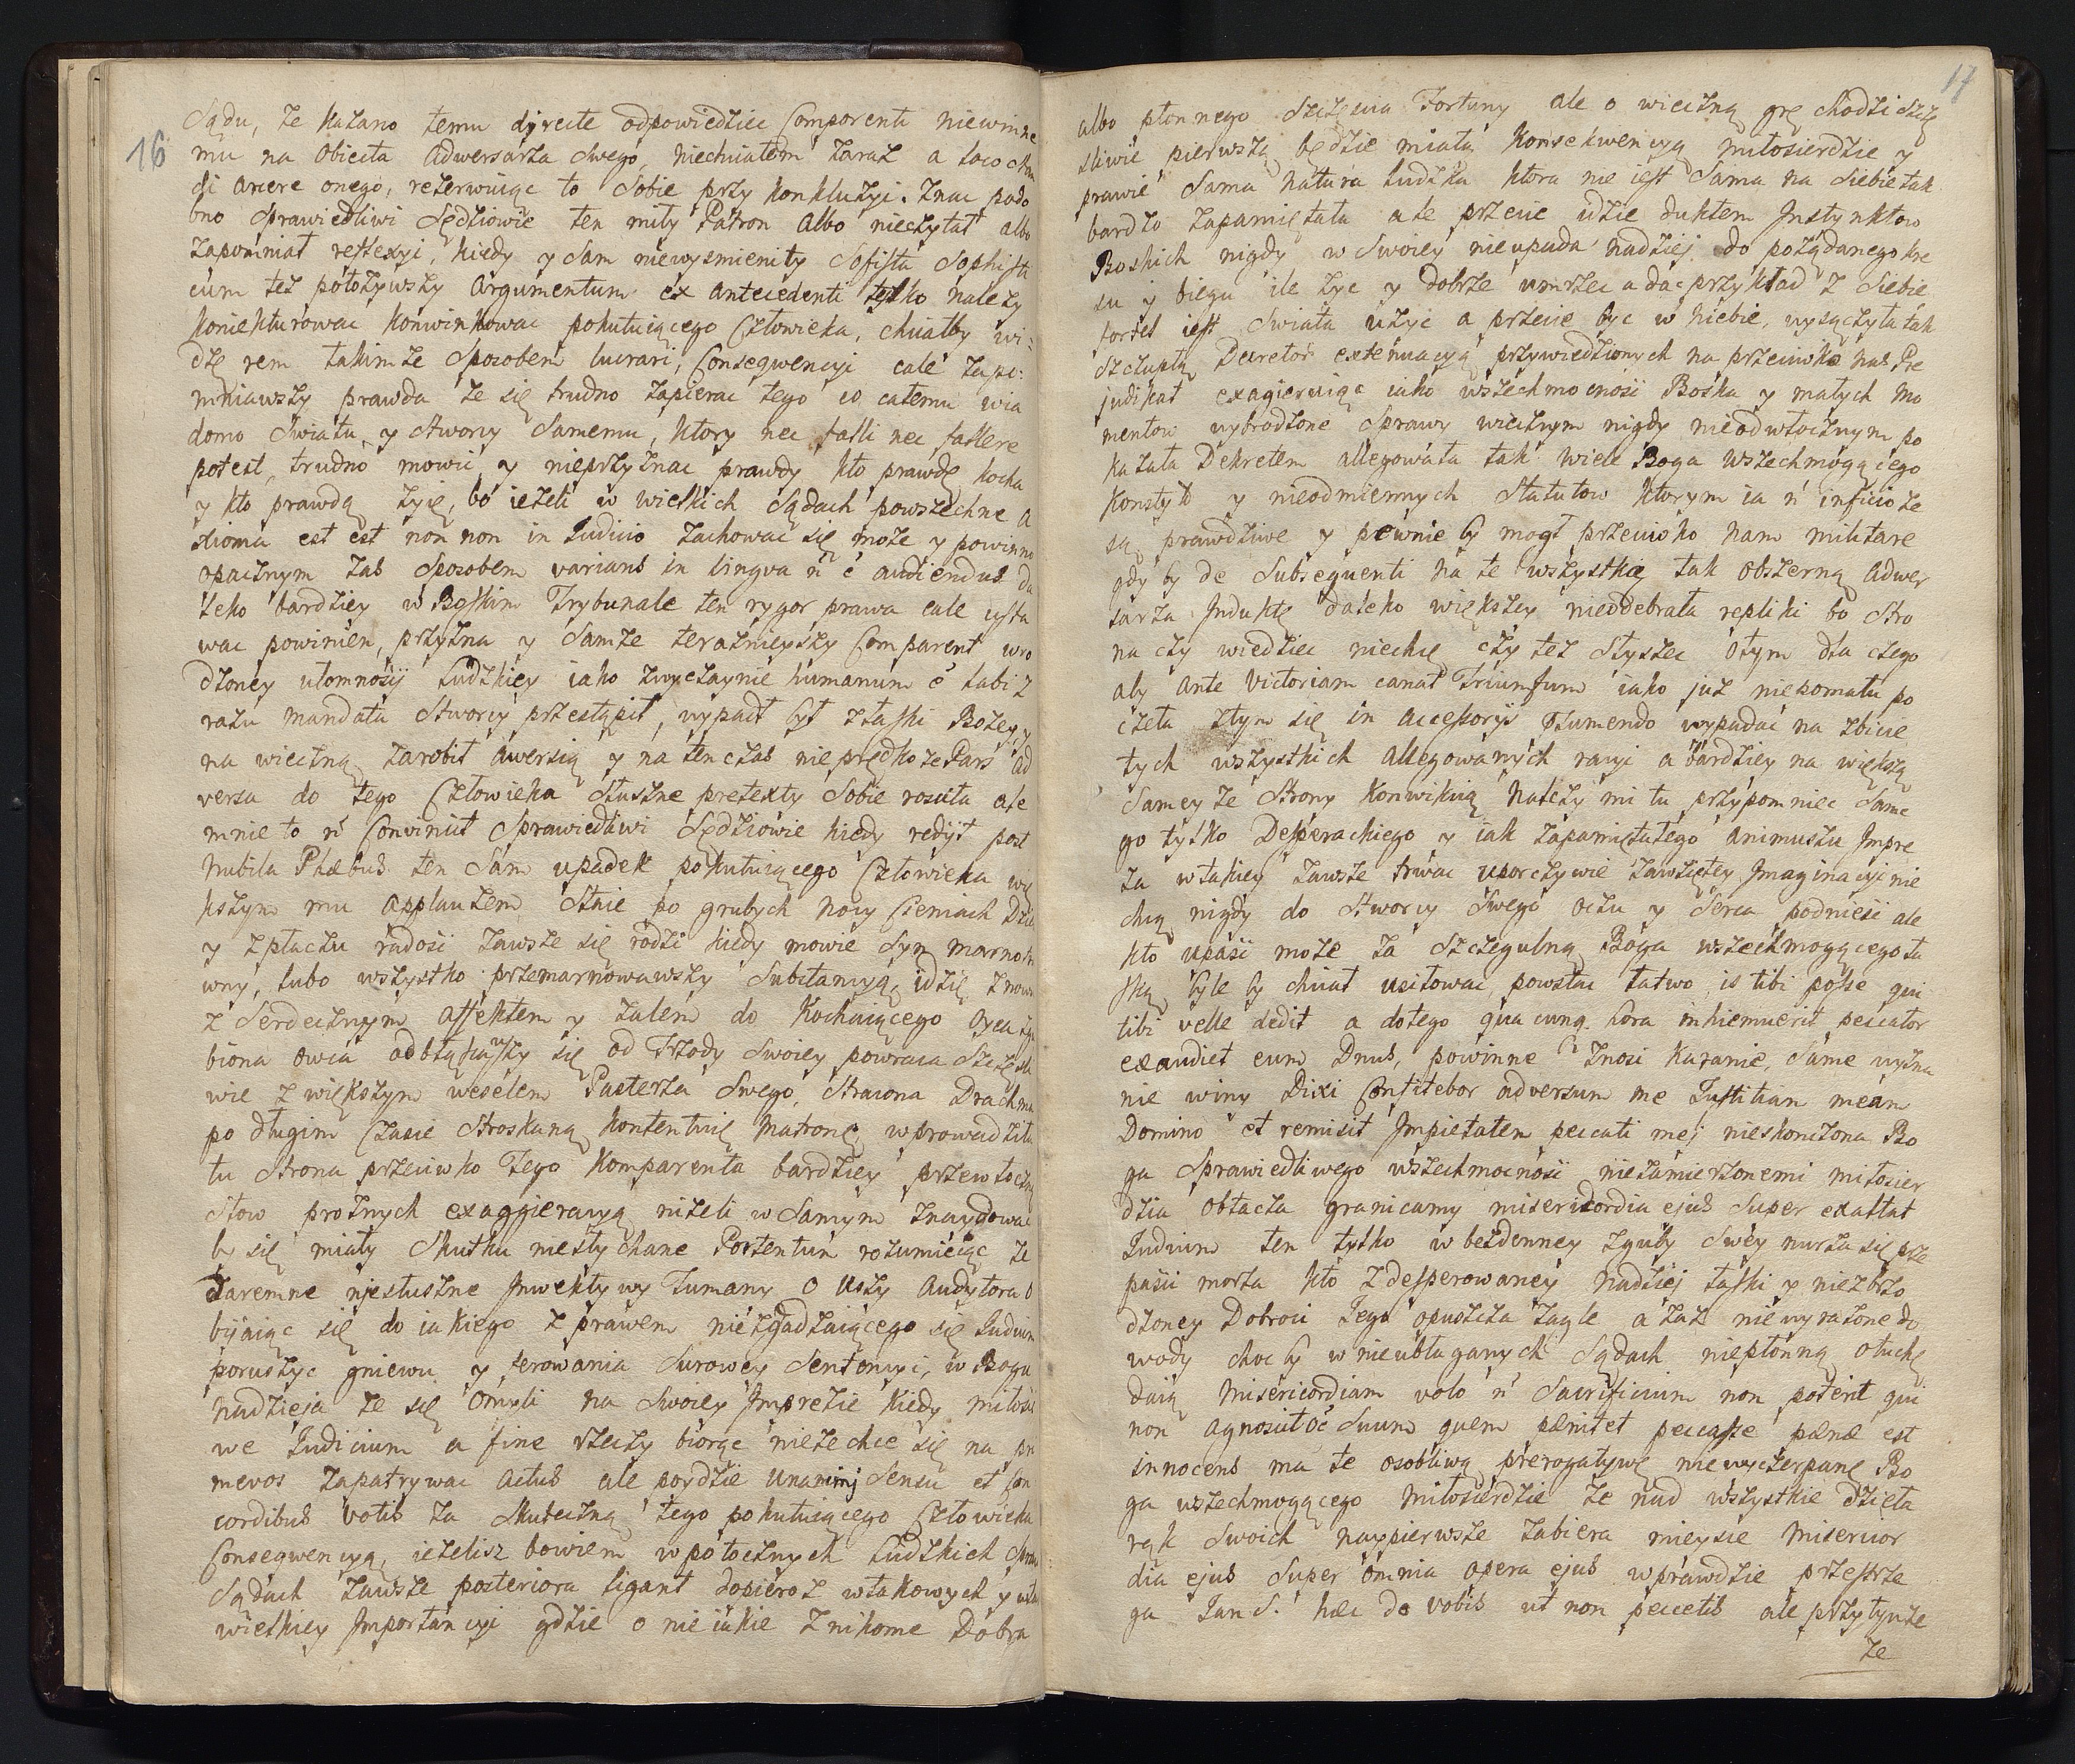 16
Sądu, że kazano temu dyrecte odpowiedziec Comparenti niewinne
mu na obiecta adwersarza swego, niechciałem zaraz a loco stan
di arcere onego, rezerwuiąc to sobie przy konkluzyi. Znac podo
bno sprawiedliwi Sędziowie ten miły Patron albo nieczytał albo
zapomniał reflexyi, kiedy y sam niewysmienity Sofista Sophisti
cum też położywszy argumentum ex antecedenti tylko należy
koniekturować konwinkować pokutuiącego Człowieka, chciałby wi:
dzę rem takimże sposobem lucrari, Conseqwencyi cale zapo:
mniawszy prawda że się trudno zapierac tego co całemu wia
domo Swiatu, y stworcy samemu, ktory nec falli nec fallere
potest, trudno mowic y nieprzyznac prawdy kto prawdę kocha
y kto prawdą żyie, bo ieżeli w wielkich Sądach powszechne a
xioma est est non non in Judicio zachowac się może y powinno
opacznym zas sposobem varians in lingva ñ ẽ audiendus da
leko bardziey w Boskim Trybunale ten rygor prawa cale usta
wac powinien, przyzna y samże teraznieyszy Comparent wro
dzoney ułomnosci ludzkiey iako zwyczaynie humanum ẽ labi z
razu mandata stworcy przestąpił, wypadł był z łaski Bożey, y
na wieczną zarobił awersią y na tenczas nie prędko ze Pars ad
versa do tego Człowieka słuszne pretexty sobie rosciła ale
mnie to ñ Convincit sprawiedliwi Sędziowie kiedy redijt post
nubila Phæbus ten sam upadek pokutuiącego Człowieka wię
kszym mu applauzem stnie po grubych nocy Cieniach Dzie
y z płaczu radosć zawsze się rodzi kiedy mowie syn marnotra
wny, lubo wszystko przemarnowawszy substancyą, idzie znowu
z serdecznym affektem y żalem do kochaiącego oyca zgu
biona owca odbłąkawszy się od Trzody swoiey powraca szczęśli
wie z większym weselem Pasterza swego, stracona Drachma
po długim czasie stroskaną kontentuie Matronę, wprowadziła
tu strona przeciwko Tego komparenta bardziey przewłoczną
słow prożnych exaggieracyą niżeli w samym znaydować
by się miały skutku niesłychane Portentum rozumieiąc że
daremne niesłuszne Inwektywy Tumany o uszy audytora o
biiaiąc się do iakiego z prawem niezgadzaiącego się Iudicium
poruszyc gniewu y ferowania surowey sentencyi, w Bogu
nadzieja że się omyli na swoiey Imprezie kiedy miłosci
we Judicium a fine rzeczy biorąc niezechce się na pri
mevos zapatrywac actus ale poydzie unanimi sensu et Con
cordibus votis za skuteczną tego pokutuiącego Człowieka
Conseqwencyą, ieżelisz bowiem w potocznych ludzkich spraw
Sądach zawsze posteriora ligant dopieroż w takowych y
wielkiey Importancyi gdzie o nie iakie znikome Dobra
17
albo płonnego szczęscia Fortuny ale o wieczną grę chodzi szczę
sliwie pierwszą będzie miała konsekwencyą miłosierdzie y
prawie sama natura ludzka ktora nie iest sama na siebie tak
bardzo zapamiętała ale przecie idzie duktem Instynktow
Boskich nigdy w swoiey nieupada nadziej do pożądanego kre
su y biegu ile żyć y dobrze umrzec a dac przykład z siebie
fortel iest swiata użyc a przecie byc w niebie, wysączyła tak
szczupłą Decretor extenuacyą przywiedzionych na przeciwko nas Pre
judikat exagieruiąc iako wszechmocnosci Boska y małych mo
mentow wybrodzone sprawy wiecznym nigdy nieodwłocznym po
kazała Dekretem allegowała tak wiele Boga wszechmogącego
konstyt y nieodmiennych statutow ktorym ia ñ inficio że
są prawdziwe y pewnie by mogł przeciwko nam militare
gdy by de subsequenti na te wszystkie tak obszerną adwer
sarza Induktę daleko większey nieodebrała repliki bo stro
na czy wiedziec niechce czy też słyszec o tym dla czego
aby ante victoriam canat Triumfum iako już niepomału po
częła z tym się in accessorijs Tumendo wypadac na zbicie
tych wszystkich allegowanych racyi a bardziey na większą
sameyże strony konwikcią należy mi tu przypomniec same
go tylko Desperackiego y iak zapamiętałego animuszu Impre
za w takiey zawsze trwac uporczywie zawziętey Imaginacyi nie
chcą nigdy do stworcy swego oczu y serca podniesć ale
kto upasć może za szczegulną Boga wszechmogącego ła
ską, byle by chciał usitować, powstac łatwo, is tibi posse qui
tibi velle dedit a do tego qua cunq. hora inhiemuerit peccator
exaudiet eum Dnus, powinne znosi karanie, same wyzna
nie winy Dixi Confitebor adversum me Justitian meam
Domino et remisit Impietatem peccati mej nieskonczona Bo
ga sprawiedliwego wszechmocnosć niezmierzonemi miłosier
dzia obtacza granicamy misericordia ejus super exaltat
Iudicium ten tylko w bezdenney zguby swey nurza się prze
pasci morza kto z desperowaney nadziej łaski y niezbrzo
dzoney Dobroci Iego opuszcza żagle a zaż niewyrażone do
wody choc by w nieubłaganych Sądach niepłonną otuchę
daią Misericordiam volo ñ sacrificium non poterit qui
non agnoscit oẽ suum quem pænitet peccasse pænæ est
innocens ma te osobliwą prerogatywę niewyczerpane Bo
ga wszechmogącego Miłosierdzie że nad wszystkie dzieła
ręk swoich naypierwsze zabiera mieysce Misericor
dia ejus super omnia opera ejus wprawdzie przestrze
ga Jan S. hæc do vobis ut non peccetis ale przytymże
że